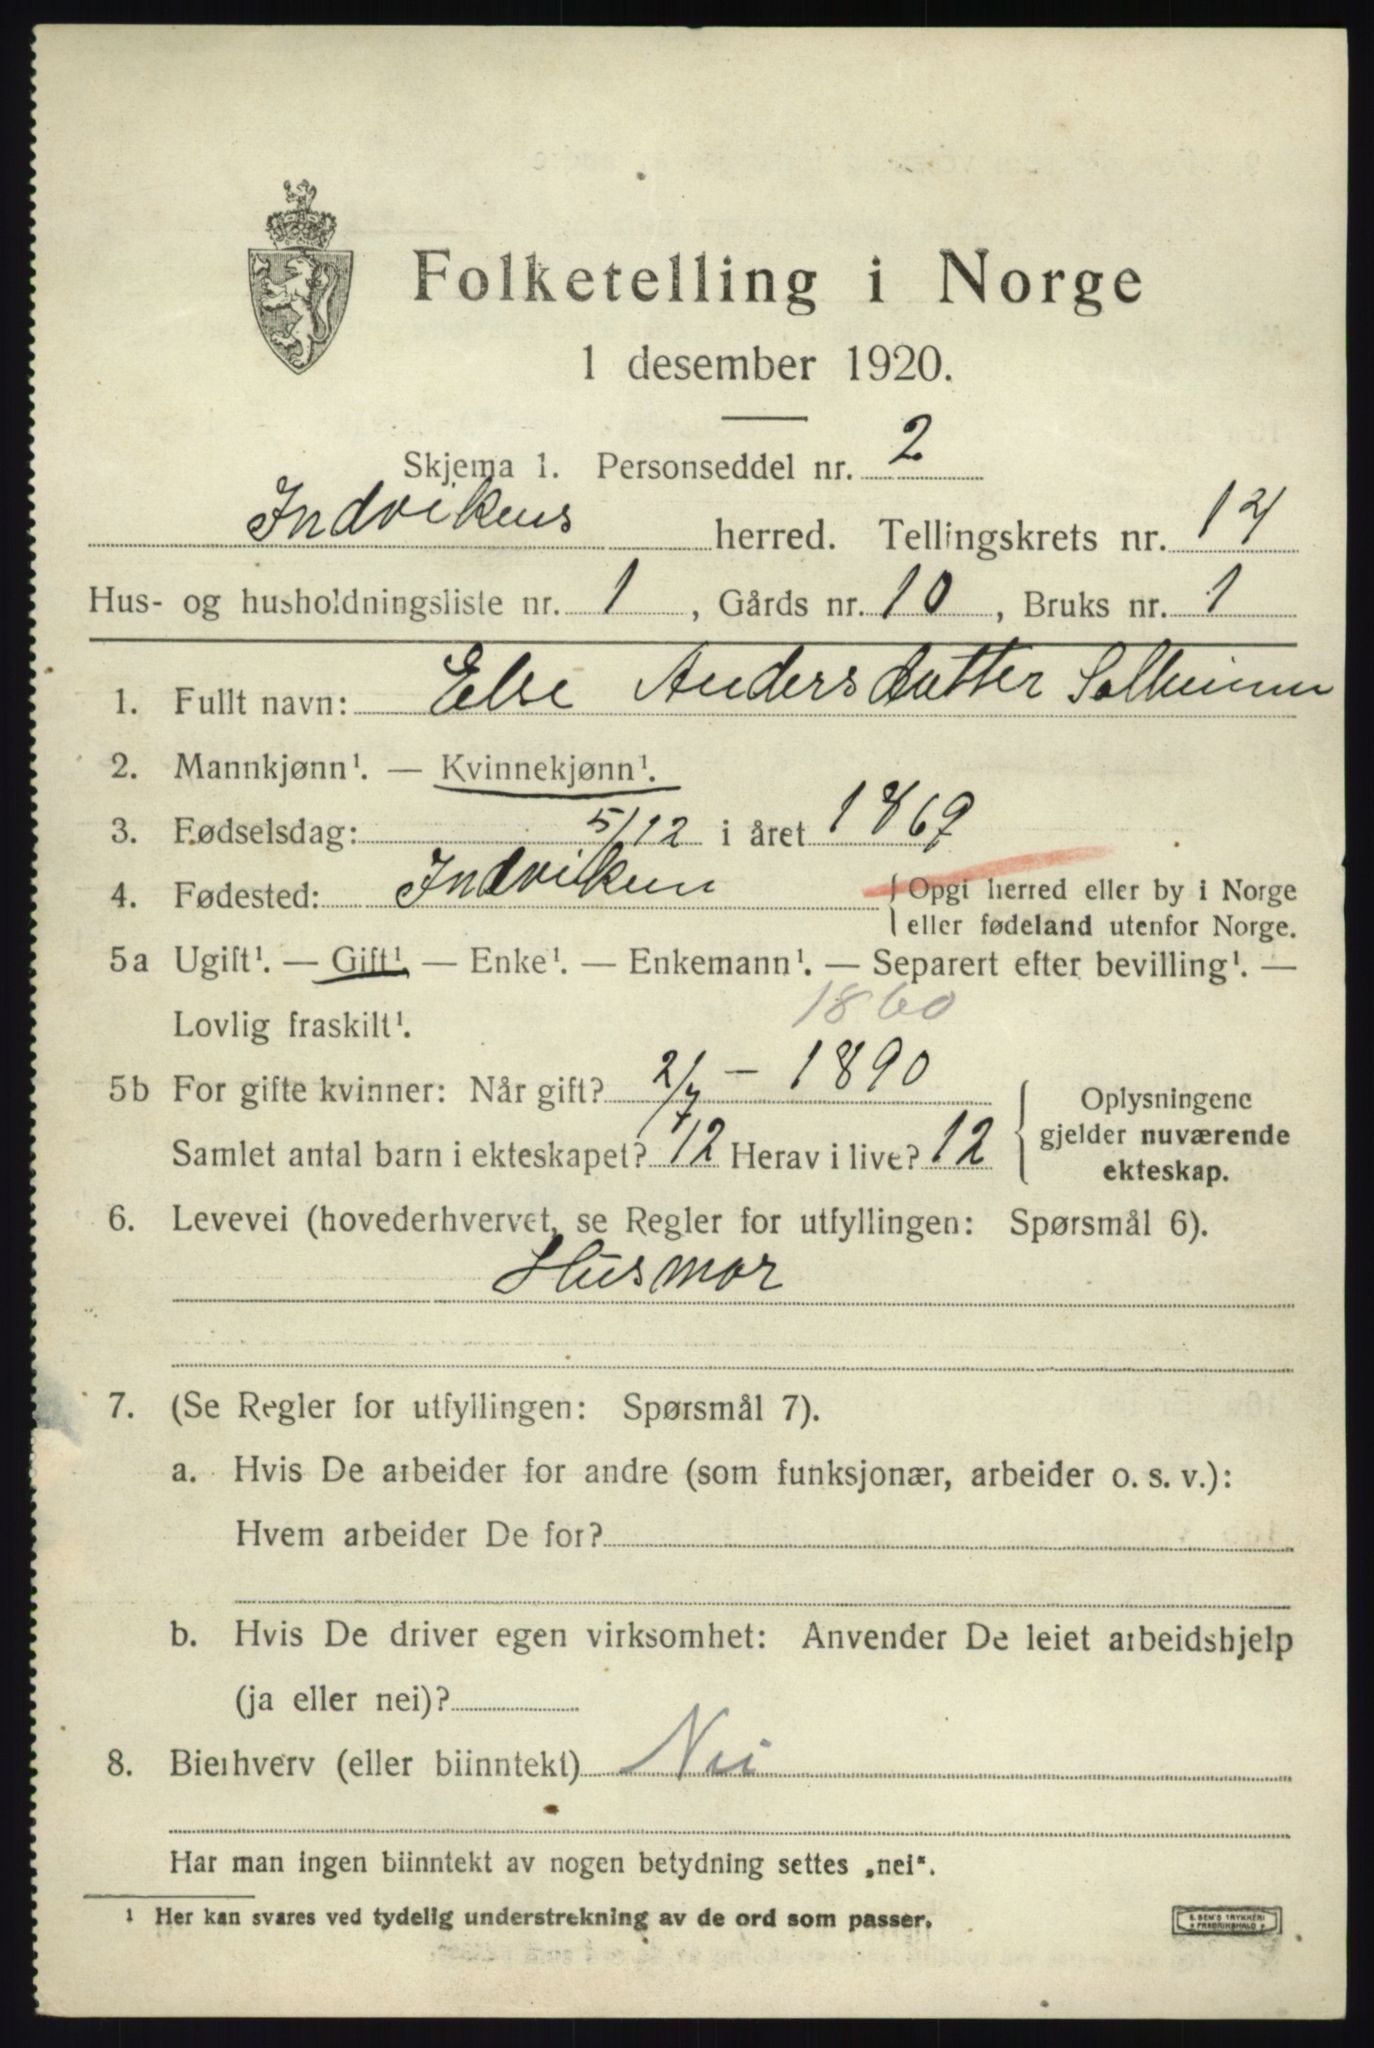 Folketelling i Norge
1 desember 1920.
Skjema 1. Personseddel nr. 2
Indvikens herred. Tellingskrets nr. 12
Hus- og husholdningsliste nr. 1, Gårds nr. 10, Bruks nr. 1
1. Fullt navn: Else Andersdatter Solheimen
2. Mannkjønn¹. — Kvinnekjønn¹.
3. Fødselsdag: 5/12 i året 1869
4. Fødested: Indviken {Opgi herred eller by i Norge
eller fødeland utenfor Norge.
5a Ugift¹. — Gift¹. — Enke¹. — Enkemann¹. — Separert efter bevilling¹. —
1860
Lovlig fraskilt¹.
5b For gifte kvinner: Når gift? 2/7 - 1890
Samlet antal barn i ekteskapet? 12 Herav i live? 12
Oplysningene
gjelder nuværende
ekteskap.
6. Levevei (hovederhvervet, se Regler for utfyllingen: Spørsmål 6).
Husmor
7. (Se Regler for utfyllingen: Spørsmål 7).
a. Hvis De arbeider for andre (som funksjonær, arbeider o. s. v.):
Hvem arbeider De for?
b. Hvis De driver egen virksomhet: Anvender De leiet arbeidshjelp
(ja eller nei)?
8. Bierhverv (eller biinntekt) Nei
Har man ingen biinntekt av nogen betydning settes „nei".
¹ Her kan svares ved tydelig understrekning av de ord som passer.
E. SEM'S TRYKKERI
FREDRIKSHALD